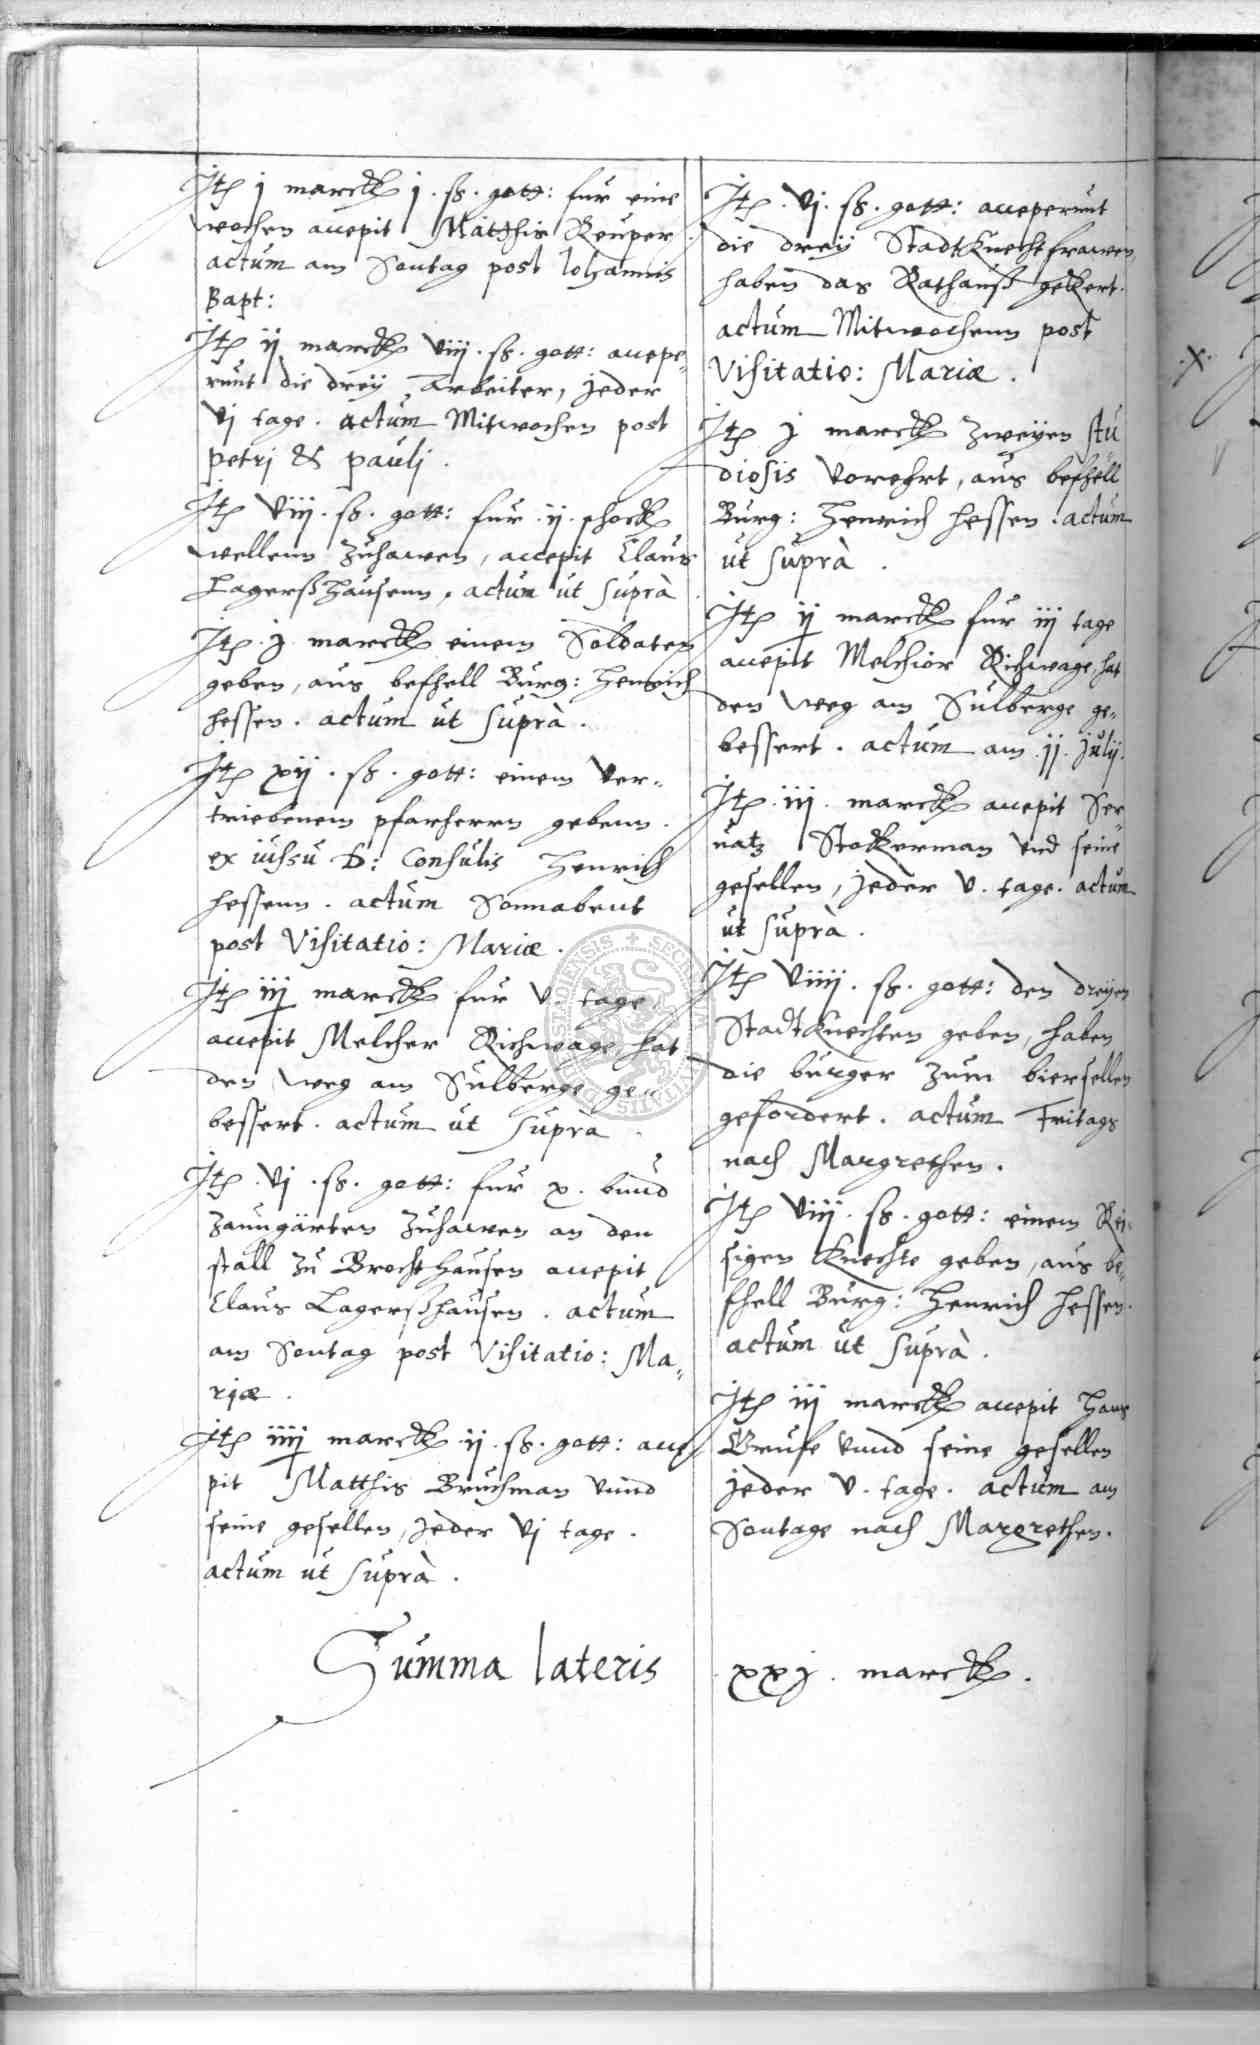 Itꝫ j marck j. ß. gott: fur eine
wochen accepit Matthis Reuper
actum am Sontag post Iohannis
Bapt:
Itꝫ ij marck viij. ß. gott: accepe„
runt die dreÿ Arbeiter, jeder
vj tage. actum Mitwochen post
petrj & paulj.
Itꝫ viij. ß. gott: fur .ij. schock
wellenn zuhawen, accepit Claus
Lagerßhausenn, actum ut suprà
Itꝫ .j. marck einem Soldaten
geben, aus befhell Burg: Henrich
hessen. actum ut suprà.
Itꝫ xij. ß. gott: einem ver„
triebenem pfarherrn gebenn.
ex iussu D: Consulis Henrich
hessenn. actum Sonnabent
post Visitatio: Mariæ.
Itꝫ iij marck fur v. tage
accepit Melcher Richwage hat
den weg am Sulberge ge„
bessert. actum ut suprà.
Itꝫ .vj. ß. gott: fur x. bund
zaungärten zuhawen an den
stall zu Brochthausen accepit
Claus Lagerßhausen. actum
am Sontag post Visitatio: Ma„
rjæ.
Itꝫ iiij marck ij. ß. gott: acce
pit Matthis Bruchman vnnd
seine gesellen, jeder vj tage.
actum ut suprà.
Itꝫ .vj. ß. gott: acceperunt
die dreÿ Stadtknechtfrawen,
haben das Rathauß gekert.
actum Mitwochenn post
Visitatio: Mariæ.
Itꝫ j marck zweÿen stu
diosis vorehrt, aus befhell
Burg: Henrich hessen. actum
ut suprà.
Itꝫ ij marck fur iij tage
accepit Melchior Richwage, hat
den weg am Sulberge ge„
bessert. actum am .ij. julij.
Itꝫ .iij. marck accepit Ser
uatz Stockerman vnd seine
gesellen, jeder v. tage. actum
ut suprà.
Itꝫ viiij. ß. gott: den dreÿen
Stadtknechten geben, haben
die burger zum biersellen
gefordert. actum Fritags
nach Margrethen.
Itꝫ viij. ß. gott: einem Rei„
sigen Knechte geben, aus be„
fhell Burg: Henrich hessen.
actum ut suprà.
Itꝫ iij marck accepit Hans
Gruse vnnd seine gesellen
jeder v. tage. actum am
Sontage nach Margrethen.
Summa lateris xxj. marck.